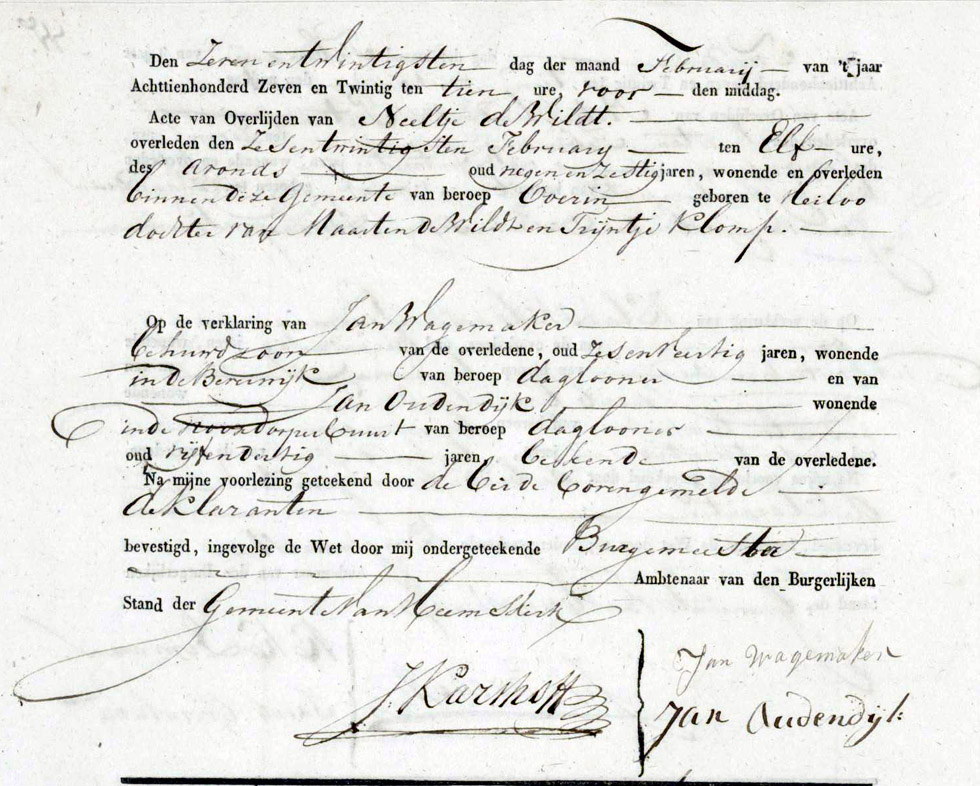 Den Zeven entwintigsten dag der maand February van 't jaar
Achttienhonderd Zeven en Twintig ten tien ure, voor den middag.
Acte van Overlijden van Neeltje d Wildt.
overleden den Zesentwintigsten February ten Elf ure,
des avonds oud negen en Zestig jaren, wonende en overleden
binnen deze Gemeente van beroep boerin geboren te Heiloo
dochter van Maarten d Wildt en Trijntje Klomp.
Op de verklaring van Jan Wagemaker
behuwd zoon van de overledene, oud Zesenveertig jaren, wonende
in de Beverwijk van beroep daglooner en van
Jan Oudendijk wonende
in de noordorper buurt van beroep daglooner
oud vijfendertig jaren bekende van de overledene.
Na mijne voorlezing geteekend door de beide bovengemelde
deklaranten
bevestigd, ingevolge de Wet door mij ondergeteekende Burgemeester
Ambtenaar van den Burgerlijken
Stand der Gemeente van Heemskerk
Jan Wagemaker
Jan Oudendijk